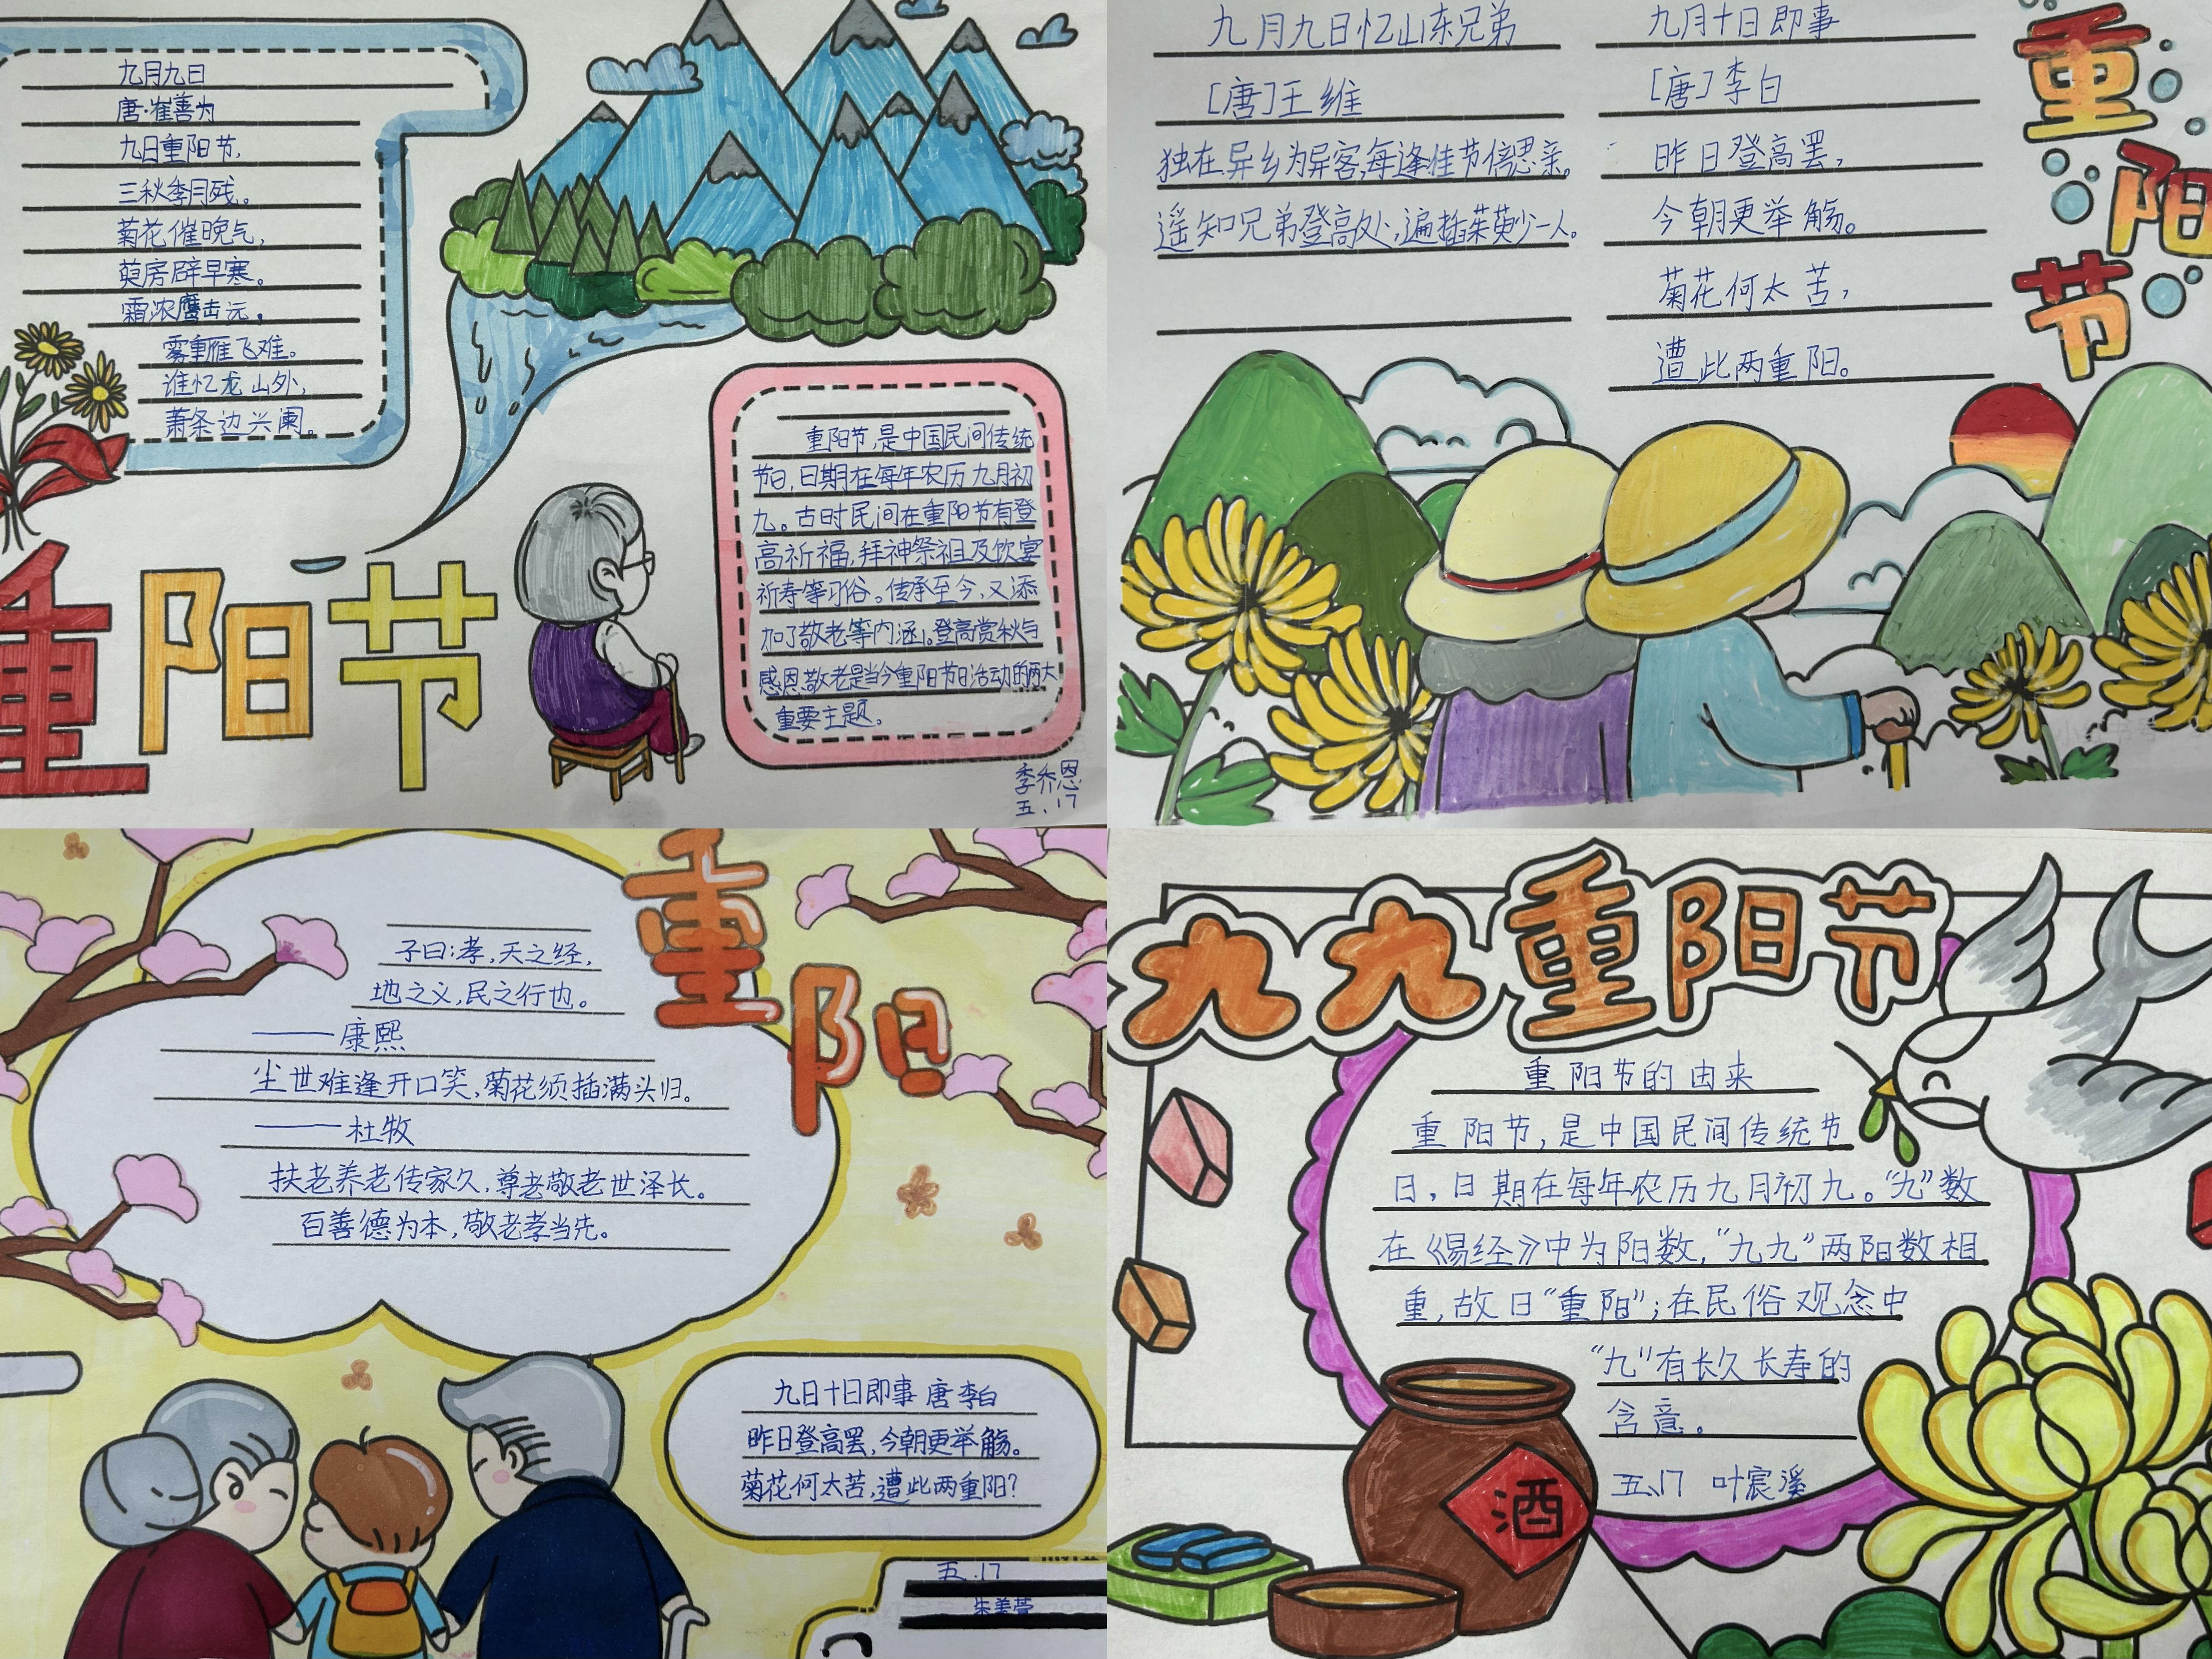 九月九日
唐·崔善为
九日重阳节，
三秋季月残。
菊花催晚气，
萸房辟早寒。
霜浓鹰击远。
雾重雁飞难。
谁忆龙山外，
萧条边兴阑。
重阳节
重阳节，是中国民间传统
节日，日期在每年农历九月初
九。古时民间在重阳节有登
高祈福，拜神祭祖及饮宴
祈寿等习俗。传承至今，又添
加了敬老等内涵。登高赏秋与
感恩敬老是当今重阳节日活动的两大
重要主题。
季乔恩
五.17
九月九日忆山东兄弟
[唐]王维
独在异乡为异客，每逢佳节倍思亲。
遥知兄弟登高处，遍插茱萸少一人。
九月十日即事
[唐]李白
昨日登高罢，
今朝更举觞。
菊花何太苦，
遭此两重阳。
重阳节
重阳
子曰：孝，天之经，
地之义，民之行也。
——康熙
尘世难逢开口笑，菊花须插满头归。
——杜牧
扶老养老传家久，尊老敬老世泽长。
百善德为本，敬老孝当先。
九日十日即事 唐 李白
昨日登高罢，今朝更举觞。
菊花何太苦，遭此两重阳？
五.17
九九重阳节
重阳节的由来
重阳节，是中国民间传统节
日，日期在每年农历九月初九。“九”数
在《易经》中为阳数，“九九”两阳数相
重，故曰“重阳”；在民俗观念中
“九”有长久长寿的
含意。
五、17 叶宸溪
酒